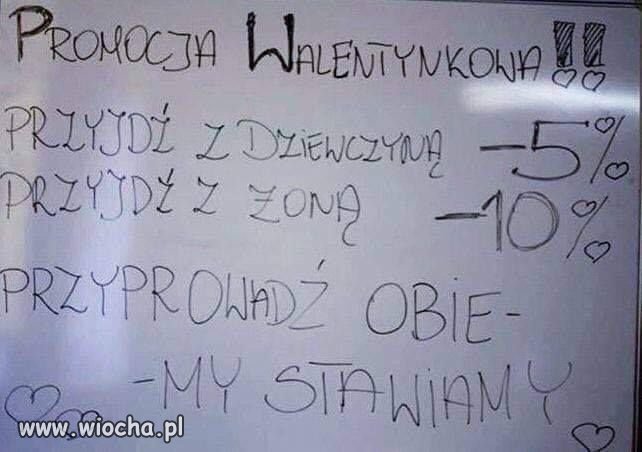 PROMOCJA WALENTYNKOWA!!
PRZYJDŹ Z DZIEWCZYNĄ -5%
PRZYJDŹ Z ŻONĄ -10%
PRZYPROWADŹ OBIE-
-MY STAWIAMY
www.wiocha.pl